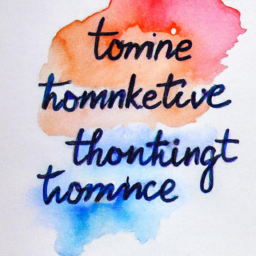 tomine
homnketive
thontingt
tromnce